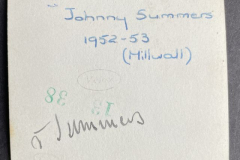 "Johnny Summers
1952-53
(Millwall)
38
13
J Summers